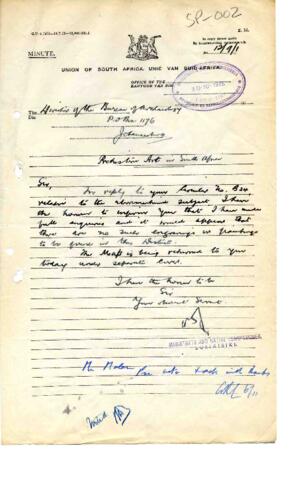 SP-002
MINUTE.
In reply please quote
No. 12/9/1
UNION OF SOUTH AFRICA. UNIE VAN SUID-AFRIKA.
OFFICE OF THE
KANTOOR VAN DIE
The Director of the Bureau of Archaeology
Die
P.O. Box 1176
Johannesburg
Prehistoric Art in South Africa
Sir,
In reply to your Circular No. B24
relative to the abovementioned subject I have
the honour to inform you that I have made
full enquiries and it would appear that
there are no such engravings or paintings
to be found in this District.
The Map is being returned to you
today under separate cover.
I have the honour to be
Sir
Your obedient Servant
MAGISTRATE AND NATIVE COMMISSIONER
Mr Malan